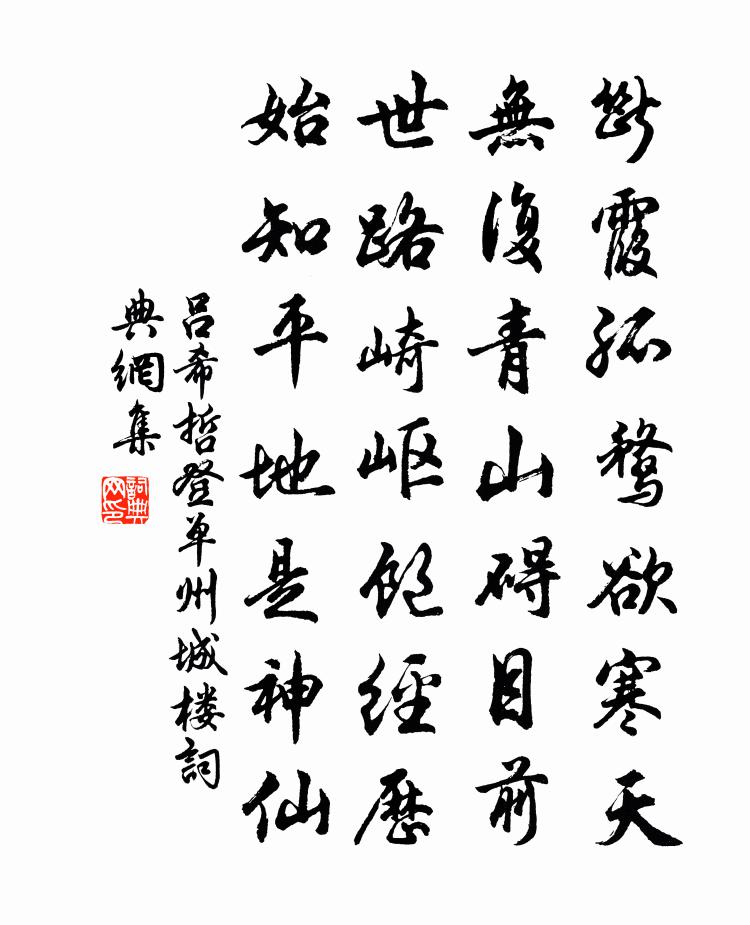 断霞孤鶩欲寒天
無復青山碍目前
世路崎岖飽經歷
始知平地是神仙
吕希哲登单州城楼詞
典網集
詞典
网印